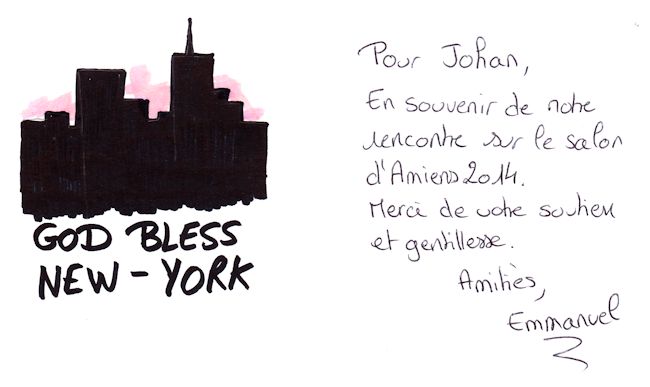 GOD BLESS
NEW-YORK
Pour Johan,
En souvenir de notre
rencontre sur le salon
d'Amiens 2014.
Merci de votre soutien
et gentillesse.
Amitiés,
Emmanuel